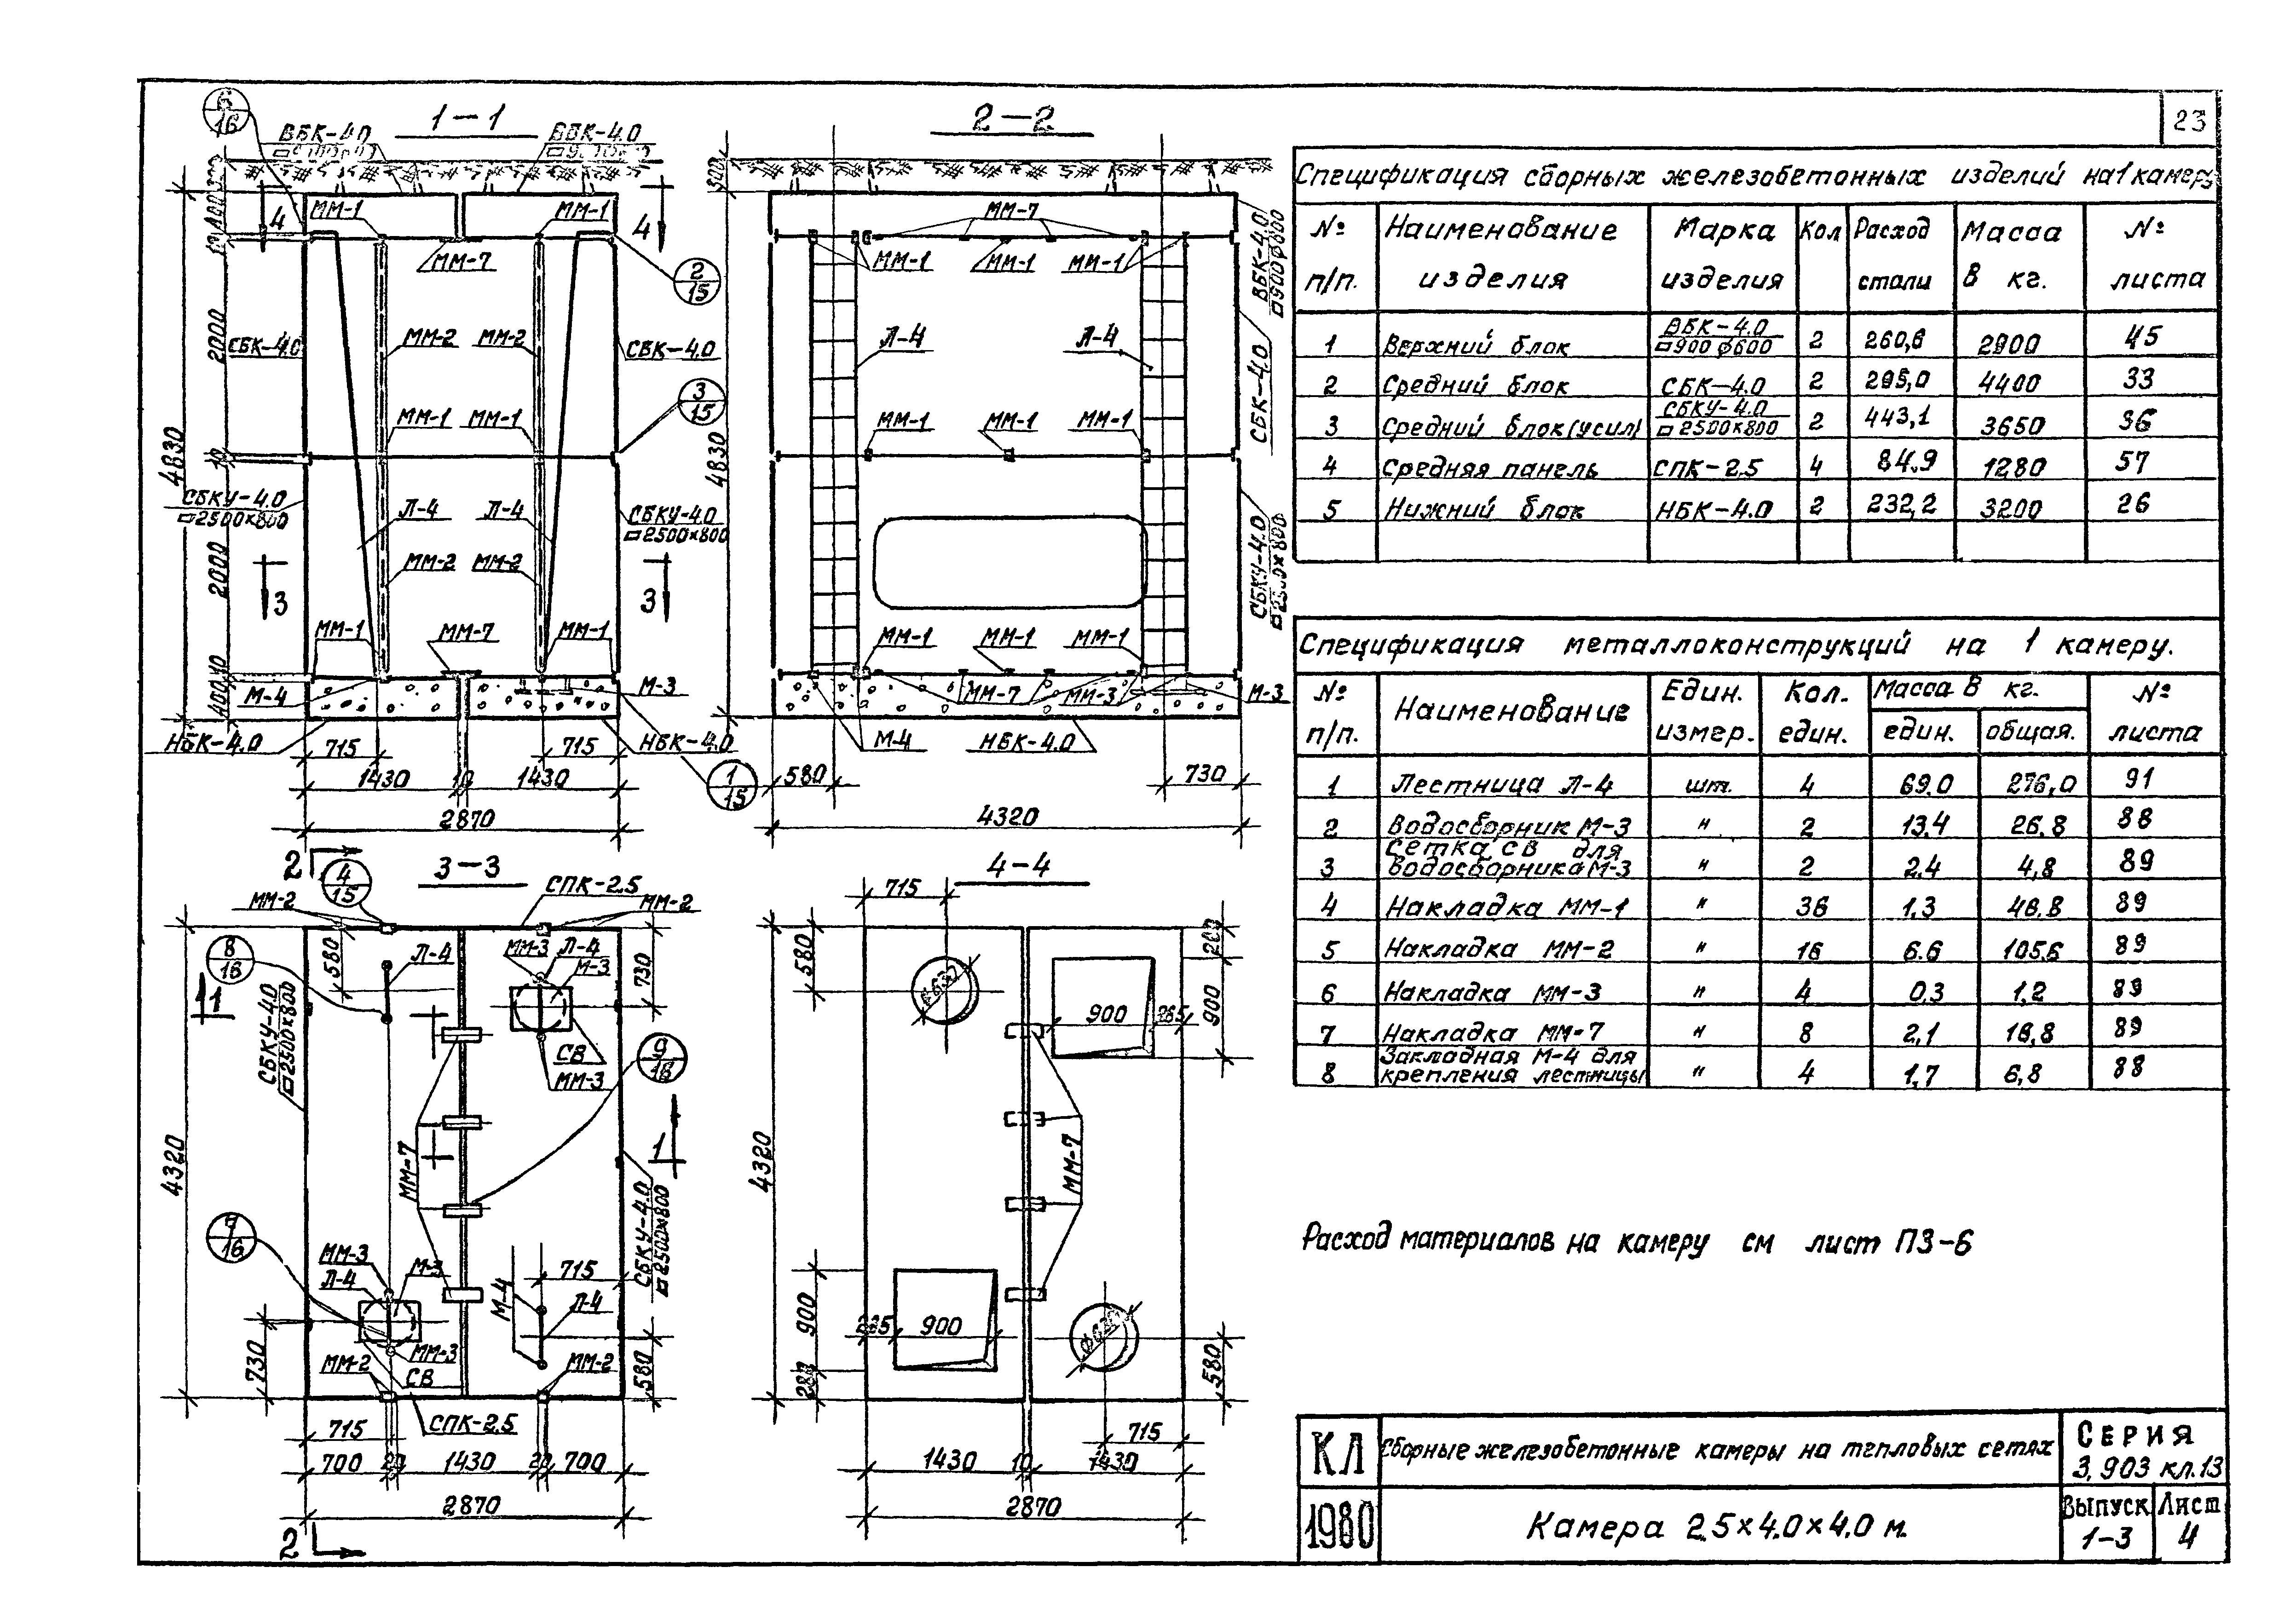 23
1-1
2-2
6
16
ВБК-4.0
ВБК-4.0
4
4
ММ-1
ММ-1
ММ-7
2
15
СБК-4.0
СБК-4.0
ММ-2
ММ-2
3
15
ММ-1
ММ-1
СБКУ-4.0
□2500×800
СБКУ-4.0
□2500×800
Л-4
Л-4
ММ-2
ММ-2
3
3
ММ-1
ММ-7
ММ-1
М-4
М-3
НБК-4.0
НБК-4.0
1
15
4830
2000
10
2000
715
715
1430
10
1430
2870
300
4830
ММ-7
ММ-1
ММ-1
ММ-1
Л-4
Л-4
ММ-1
ММ-1
ММ-1
ММ-1
ММ-1
ММ-1
ММ-7
ММ-3
М-3
М-4
НБК-4.0
ВБК-4.0
□900ф600
СБК-4.0
СБКУ-4.0
580
730
4320
Спецификация сборных железобетонных изделий на 1 камеру
№ п/п. Наименование изделия Марка изделия Кол Расход стали Масса в кг. № листа
1 Верхний блок ВБК-4.0 □900 ф600 2 260,6 2900 45
2 Средний блок СБК-4.0 2 295,0 4400 33
3 Средний блок(усил) СБКУ-4.0 □2500×800 2 443,1 3650 36
4 Средняя панель СПК-2.5 4 84.9 1280 57
5 Нижний блок НБК-4.0 2 232,2 3200 26
Спецификация металлоконструкций на 1 камеру.
№ п/п. Наименование Един. измер. Кол. един. Масса в кг. един. общая. № листа
1 Лестница Л-4 шт. 4 69.0 276,0 91
2 Водосборник М-3 " 2 13.4 26.8 88
3 Сетка СВ для водосборника М-3 " 2 2.4 4,8 89
4 Накладка ММ-1 " 36 1.3 46.8 89
5 Накладка ММ-2 " 16 6.6 105.6 89
6 Накладка ММ-3 " 4 0.3 1,2 89
7 Накладка ММ-7 " 8 2,1 16,8 89
8 Закладная М-4 для крепления лестницы " 4 1,7 6,8 88
Расход материалов на камеру см лист ПЗ-6
3-3
2
4
15
ММ-2
СПК-2.5
ММ-2
8
16
580
Л-4
ММ-3
Л-4
М-3
730
1
СБКУ-4.0
□2500×800
СВ
ММ-3
9
16
ММ-7
1
СБКУ-4.0
□2500×800
4320
7
16
ММ-3
Л-4
М-3
М-4
715
Л-4
730
ММ-2
ММ-3
СВ
ММ-2
580
СПК-2.5
715
700
20
1430
20
700
2870
2
4-4
715
580
200
900
900
285
4320
ММ-7
900
285
900
580
715
1430
10
1430
2870
КЛ
1980
Сборные железобетонные камеры на тепловых сетях
Камера 2.5×4.0×4.0 м.
СЕРИЯ
3.903 кл.13
Выпуск
1-3
Лист
4